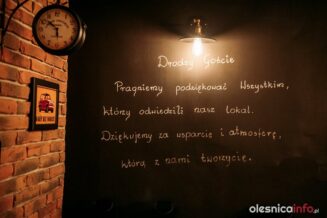 Drodzy Goście
Pragniemy podziękować Wszystkim,
którzy odwiedzili nasz lokal.
Dziękujemy za wsparcie i atmosferę,
którą z nami tworzycie.
olesnicainfo.pl